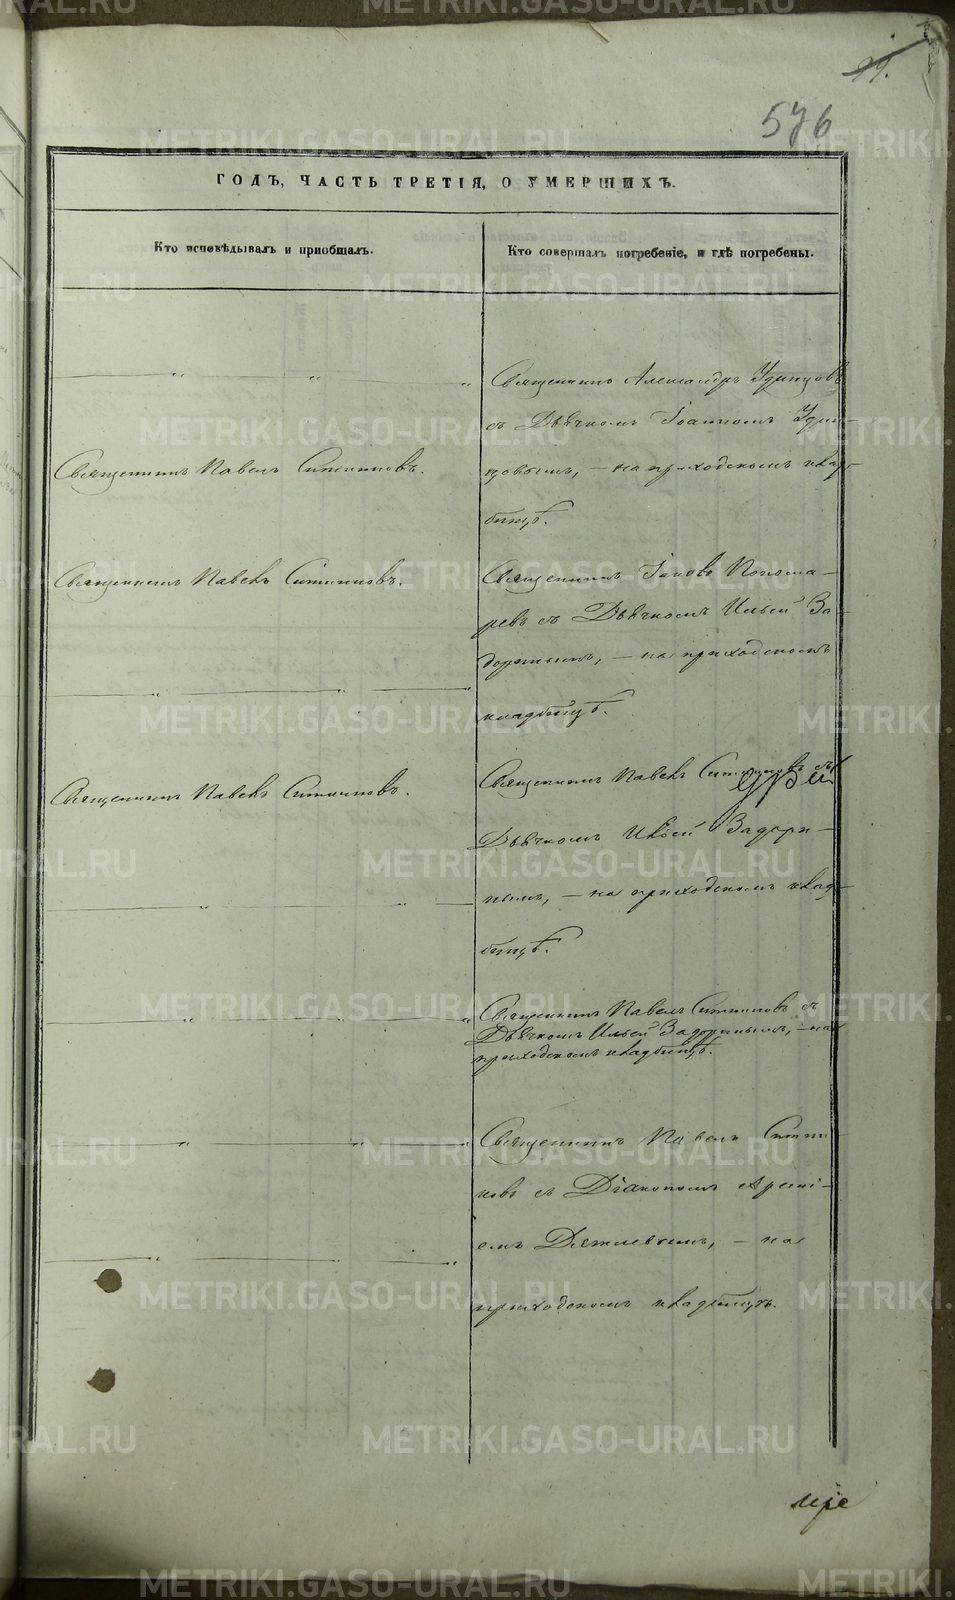 99.
576
ГОДЪ, ЧАСТЬ ТРЕТІЯ, О УМЕРШИХЪ.
Кто исповѣдывалъ и пріобщалъ.
Кто совершалъ погребеніе, и гдѣ погребены.
Священникъ Александръ Удинцовъ
съ Дьячкомъ Іоанномъ Удин-
цовымъ, — на приходскомъ клад-
бищѣ.
Священникъ Павелъ
Священникъ Павелъ
Священникъ Іаковъ Понома-
ревъ съ Дьячкомъ Ильей За-
доринымъ, — на приходскомъ
кладбищѣ.
Священникъ Павелъ
Священникъ Павелъ съ
Дьячкомъ Ильей Задори-
нымъ, — на приходскомъ клад-
бищѣ.
Священникъ Павелъ съ
Дьячкомъ Ильей Задоринымъ, — на
приходскомъ кладбищѣ.
Священникъ Павелъ
съ Діакономъ Арсені-
емъ — на
приходскомъ кладбищѣ.
METRIKI.GASO-URAL.RU